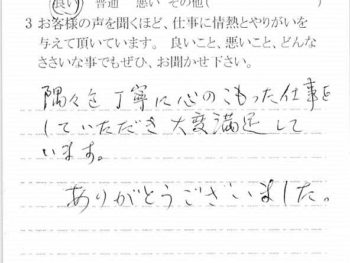 良い 普通 悪い その他( )
3 お客様の声を聞くほど、仕事に情熱とやりがいを
与えて頂いています。 良いこと、悪いこと、どんな
ささいな事でもぜひ、お聞かせ下さい。
隅々を丁寧に心のこもった仕事を
していただき大変満足して
います。
ありがとうございました。